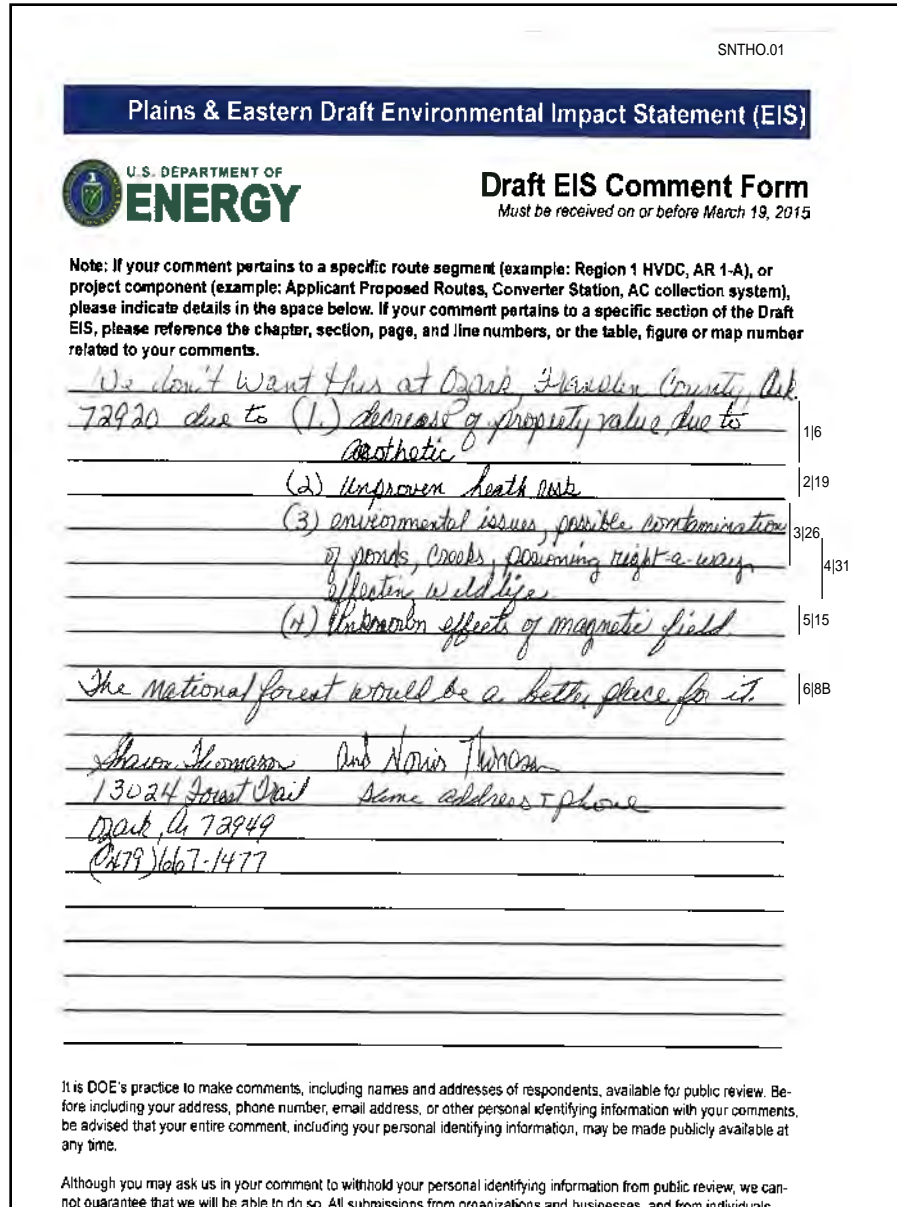 SNTHO.01
Plains & Eastern Draft Environmental Impact Statement (EIS)
U.S. DEPARTMENT OF
ENERGY
Draft EIS Comment Form
Must be received on or before March 19, 2015
Note: If your comment pertains to a specific route segment (example: Region 1 HVDC, AR 1-A), or
project component (example: Applicant Proposed Routes, Converter Station, AC collection system),
please indicate details in the space below. If your comment pertains to a specific section of the Draft
EIS, please reference the chapter, section, page, and line numbers, or the table, figure or map number
related to your comments.
We don't want this at Ozark, County, Ark.
72920 due to (1.) decrease of property value due to
1|6
aesthetic
(2) Unproven heath risk
2|19
(3) enviormental issues, possible contamination
3|26
of ponds, creeks, posioning right-a-way
4|31
effectin wildlife
(4) Unknown effects of magnetic field.
5|15
The national forest would be a better place for it.
6|8B
Sharon Thomason and Norris Thomason
13024 Forest Trail same address + phone
Ozark, Ar 72949
(479)667-1477
It is DOE's practice to make comments, including names and addresses of respondents, available for public review. Be-
fore including your address, phone number, email address, or other personal identifying information with your comments,
be advised that your entire comment, including your personal identifying information, may be made publicly available at
any time.
Although you may ask us in your comment to withhold your personal identifying information from public review, we can-
not guarantee that we will be able to do so. All submissions from organizations and businesses, and from individuals